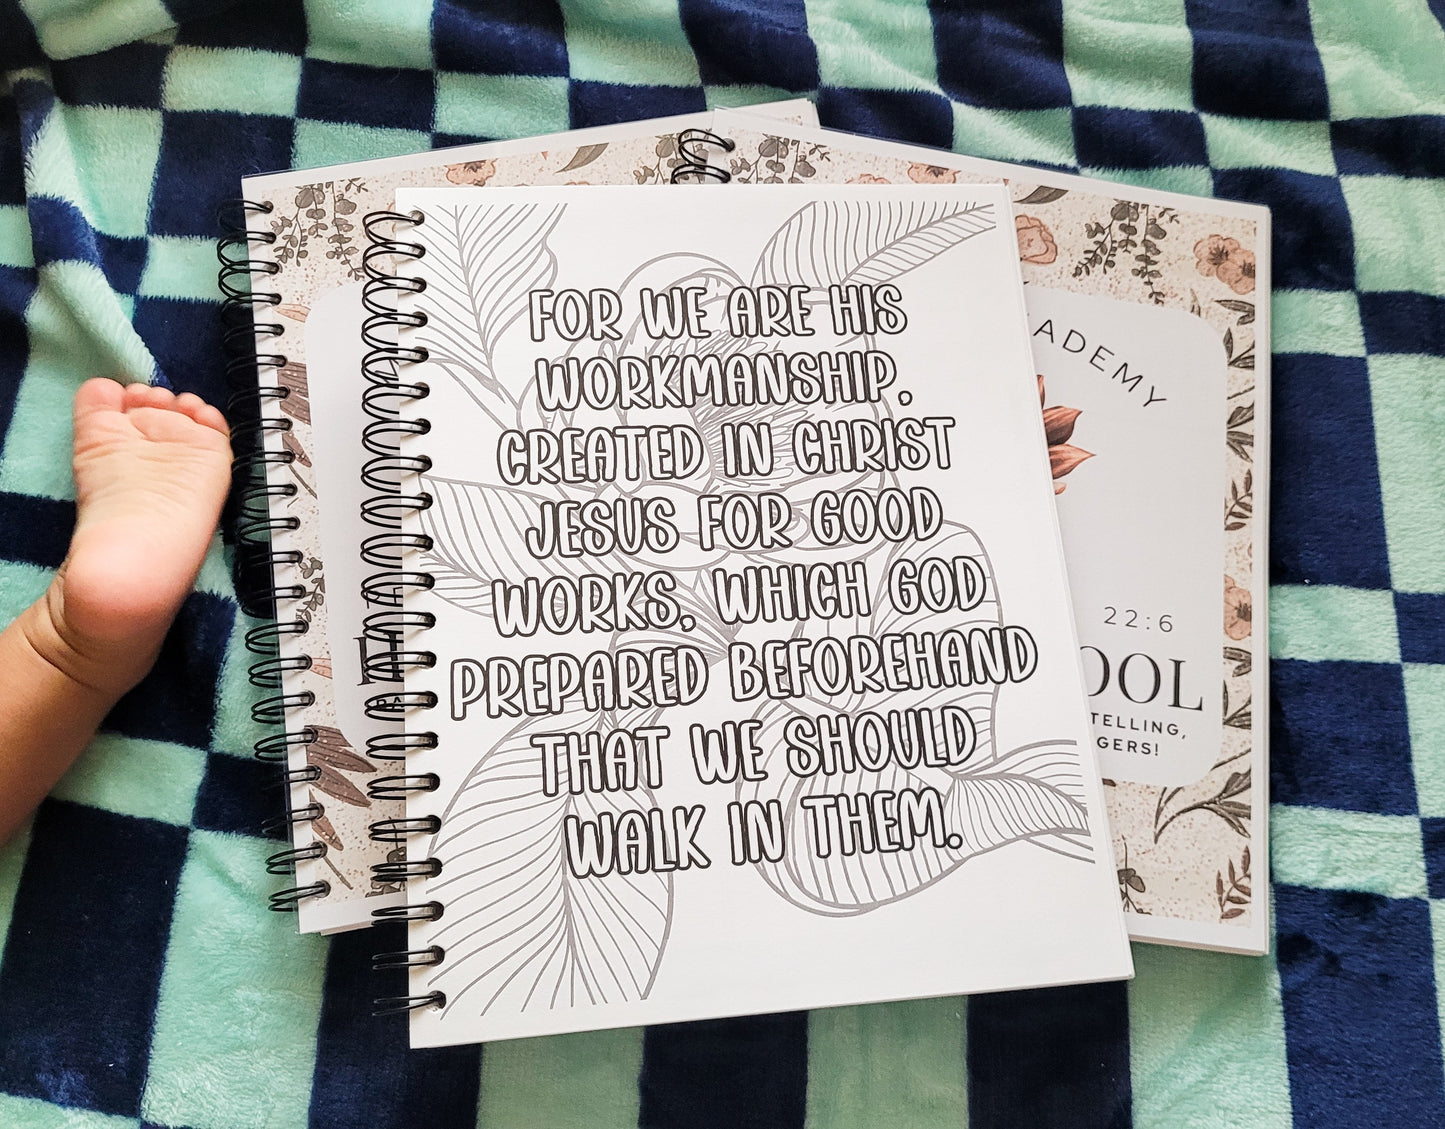 FOR WE ARE HIS
WORKMANSHIP.
CREATED IN CHRIST
JESUS FOR GOOD
WORKS, WHICH GOD
PREPARED BEFOREHAND
THAT WE SHOULD
WALK IN THEM.
ADEMY
22:6
OOL
TELLING,
GERS!